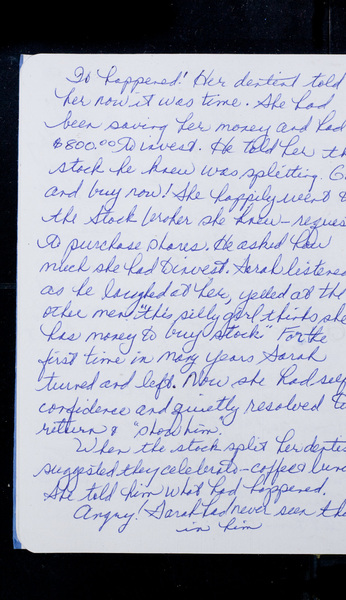 It happened! Her dentist told
her now it was time. She had
been saving her money and had
$800.00 to invest. He told her th
stock he knew was splitting. G
and buy now! She happily went t
the Stock broker she knew - reques
to purchase shares. He asked how
much she had to invest. Sarah listened
as he laughed at her, yelled at the
other men "this silly girl thinks she
has money to buy stock" For the
first time in many years Sarah
turned and left. Now she had self
confidence and quietly resolved to
return & "show him."
When the stock split her dentis
suggested they celebrate - coffee & lunc
She told him what had happened.
Angry! Sarah had never seen th
in him